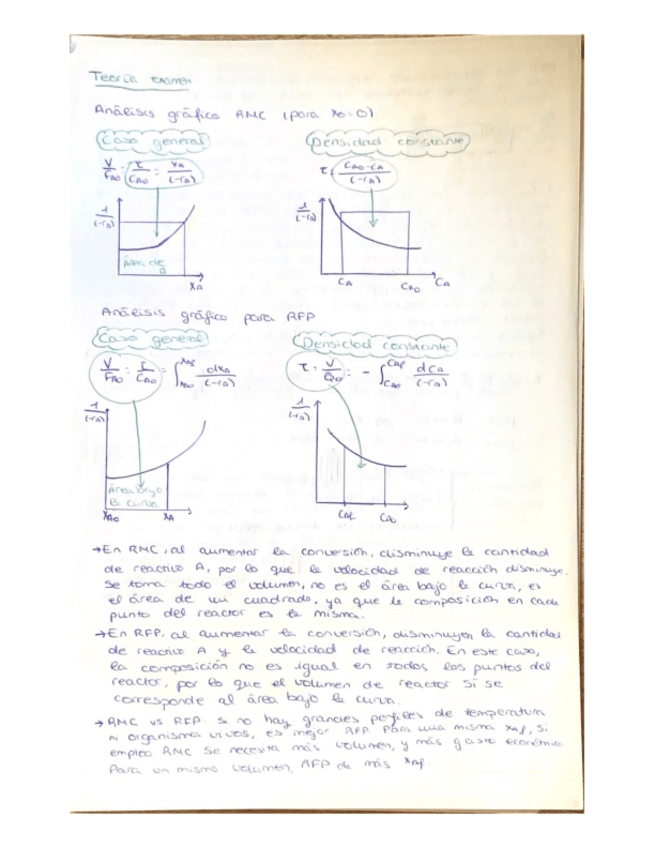 Teoría examen
Análisis gráfico RMC (para x0=0)
Caso general
Densidad constante
V/FA0 = τ/CA0 = xA/(-rA)
τ = CA0-CA/(-rA)
1/(-rA)
1/(-rA)
Área de
xA
CA
CA0
CA
Análisis gráfico para RFP
Caso general
Densidad constante
V/FA0 = τ/CA0 = ∫xA0 xAf dxA/(-rA)
τ = V/Q0 = - ∫CA0 CAf dCA/(-rA)
1/(-rA)
1/(-rA)
Área bajo
la curva
xA0
xA
CAf
CA0
→ En RMC, al aumentar la conversión, disminuye la cantidad
de reactivo A, por lo que la velocidad de reacción disminuye.
Se toma todo el volumen, no es el área bajo la curva, es
el área de un cuadrado, ya que la composición en cada
punto del reactor es la misma.
→ En RFP, al aumentar la conversión, disminuyen la cantidad
de reactivo A y la velocidad de reacción. En este caso,
la composición no es igual en todos los puntos del
reactor, por lo que el volumen de reactor sí se
corresponde al área bajo la curva.
→ RMC vs RFP: si no hay grandes perfiles de temperatura
ni organismos vivos, es mejor RFP. Para una misma xAf, si
empleo RMC se necesita más volumen, y más gasto económico.
Para un mismo volumen, RFP da más xAf.